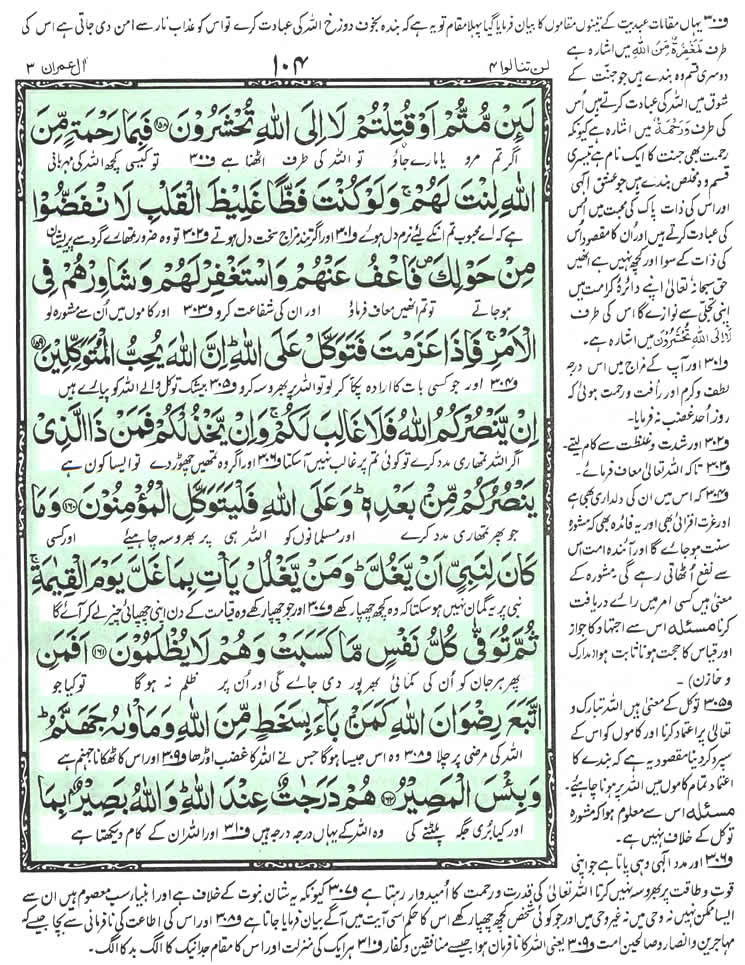 و۳۰۰ یہاں مقامات عبدیت کے تینوں مقاموں کا بیان فرمایا گیا پہلا مقام تو یہ ہے کہ بندہ بخوف دوزخ اللہ کی عبادت کرے تو اس کو عذاب نار سے امن دی جاتی ہے اس کی
لن تنالوا ۴
۱۰۴
اٰل عمران ۳
لَئِنْ مُّتُّمْ اَوْ قُتِلْتُمْ لَاۡاِلَی اللّٰہِ تُحْشَرُوْنَ ﴿۱۵۸﴾ فَبِمَا رَحْمَۃٍ مِّنَ
اگر تم مرو یا مارے جاؤ تو اللہ کی طرف اٹھنا ہے و۳۰۰ تو کیسی کچھ اللہ کی مہربانی
اللّٰہِ لِنْتَ لَہُمْ ۚ وَلَوْ کُنْتَ فَظًّا غَلِیْظَ الْقَلْبِ لَا نْفَضُّوْا
ہے کہ اے محبوب تم انکے لیے نرم دل ہوئے و۳۰۱ اور اگر تند مزاج سخت دل ہوتے و۳۰۲ تو وہ ضرور تمھارے گرد سے پریشان
مِنْ حَوْلِکَ ۪ فَاعْفُ عَنْہُمْ وَاسْتَغْفِرْ لَہُمْ وَشَاوِرْہُمْ فِی
ہو جاتے تو تم انھیں معاف فرماؤ اور ان کی شفاعت کرو و۳۰۳ اور کاموں میں اُن سے مشورہ لو
الْاَمْرِ ۚ فَاِذَا عَزَمْتَ فَتَوَکَّلْ عَلَی اللّٰہِ ؕ اِنَّ اللّٰہَ یُحِبُّ الْمُتَوَکِّلِیْنَ ﴿۱۵۹﴾
و۳۰۴ اور جو کسی بات کا ارادہ پکا کر لو تو اللہ پر بھروسہ کرو و۳۰۵ بیشک توکل والے اللہ کو پیارے ہیں
اِنْ یَّنْصُرْکُمُ اللّٰہُ فَلَا غَالِبَ لَکُمْ ۚ وَاِنْ یَّخْذُلْکُمْ فَمَنْ ذَا الَّذِیْ
اگر اللہ تمھاری مدد کرے تو کوئی تم پر غالب نہیں آسکتا و۳۰۶ اور اگر وہ تمھیں چھوڑ دے تو ایسا کون ہے
یَنْصُرُکُمْ مِّنْۢ بَعْدِہٖ ؕ وَعَلَی اللّٰہِ فَلْیَتَوَکَّلِ الْمُؤْمِنُوْنَ ﴿۱۶۰﴾ وَمَا
جو پھر تمھاری مدد کرے اور مسلمانوں کو اللہ ہی پر بھروسہ چاہیئے اور کسی
کَانَ لِنَبِیٍّ اَنْ یَّغُلَّ ؕ وَمَنْ یَّغْلُلْ یَاْتِ بِمَا غَلَّ یَوْمَ الْقِیٰمَۃِ ۚ
نبی پر یہ گمان نہیں ہو سکتا کہ وہ کچھ چھپا رکھے و۳۰۷ اور جو چھپا رکھے وہ قیامت کے دن اپنی چھپائی چیز لے کر آئے گا
ثُمَّ تُوَفّٰی کُلُّ نَفْسٍ مَّا کَسَبَتْ وَہُمْ لَا یُظْلَمُوْنَ ﴿۱۶۱﴾ اَفَمَنِ
پھر ہر جان کو اُن کی کمائی بھرپور دی جائے گی اور اُن پر ظلم نہ ہو گا تو کیا جو
اتَّبَعَ رِضْوَانَ اللّٰہِ کَمَنْۢ بَآءَ بِسَخَطٍ مِّنَ اللّٰہِ وَمَاْوٰىہُ جَہَنَّمُ ؕ
اللہ کی مرضی پر چلا و۳۰۸ وہ اس جیسا ہو گا جس نے اللہ کا غضب اوڑھا و۳۰۹ اور اس کا ٹھکانا جہنم ہے
وَبِئْسَ الْمَصِیْرُ ﴿۱۶۲﴾ ہُمْ دَرَجٰتٌ عِنْدَ اللّٰہِ ؕ وَاللّٰہُ بَصِیْرٌۢ بِمَا
اور کیا بُری جگہ پلٹنے کی وہ اللہ کے یہاں درجہ درجہ ہیں و۳۱۰ اور اللہ ان کے کام دیکھتا ہے
طرف مَغْفِرَۃٌ مِّنَ اللّٰہِ میں اشارہ ہے
دوسری قسم وہ بندے ہیں جو جنّت کے
شوق میں اللہ کی عبادت کرتے ہیں اُس
کی طرف وَرَحْمَۃٌ میں اشارہ ہے کیونکہ
رحمت بھی جنت کا ایک نام ہے تیسری
قسم وہ مخلص بندے ہیں جو عشق الٰہی
اور اس کی ذات پاک کی محبت میں اُس
کی عبادت کرتے ہیں اور اُن کا مقصود اُس
کی ذات کے سوا اور کچھ نہیں ہے انھیں
حق سبحانہ تعالیٰ اپنے دائرۂ کرامت میں
اپنی تجلّی سے نوازے گا اس کی طرف
لَاۡاِلَی اللّٰہِ تُحْشَرُوْنَ میں اشارہ ہے۔
و۳۰۱ اور آپ کے مزاج میں اس درجہ
لطف و کرم اور رأفت و رحمت ہوئی کہ
روز اُحد غضب نہ فرمایا۔
و۳۰۲ اور شدت و غلظت سے کام لیتے۔
و۳۰۳ تاکہ اللہ تعالیٰ معاف فرمائے۔
و۳۰۴ کہ اس میں ان کی دلداری بھی ہے
اور عزت افزائی بھی اور یہ فائدہ بھی کہ مشورہ
سنت ہو جائے گا اور آئندہ امت اس
سے نفع اُٹھاتی رہے گی مشورہ کے
معنی ہیں کسی امر میں رائے دریافت
کرنا مسئلہ اس سے اجتہاد کا جواز
اور قیاس کا حجت ہونا ثابت ہوا (مدارک
و خازن)۔
و۳۰۵ توکل کے معنی ہیں اللہ تبارک و
تعالیٰ پر اعتماد کرنا اور کاموں کو اس کے
سپرد کر دینا مقصود یہ ہے کہ بندے کا
اعتماد تمام کاموں میں اللہ پر ہونا چاہیئے۔
مسئلہ اس سے معلوم ہوا کہ مشورہ
توکل کے خلاف نہیں ہے۔
و۳۰۶ اور مدد الٰہی وہی پاتا ہے جو اپنی
قوت و طاقت پر بھروسہ نہیں کرتا اللہ تعالیٰ کی قدرت و رحمت کا اُمیدوار رہتا ہے و۳۰۷ کیونکہ یہ شان نبوت کے خلاف ہے اور انبیاء سب معصوم ہیں ان سے
ایسا ممکن نہیں نہ وحی میں نہ غیر وحی میں اور جو کوئی شخص کچھ چھپا رکھے اس کا حکم اسی آیت میں آگے بیان فرمایا جاتا ہے و۳۰۸ اور اس کی اطاعت کی نافرمانی سے بچا جیسے کہ
مہاجرین و انصار و صالحین امت و۳۰۹ یعنی اللہ کا نافرمان ہوا جیسے منافقین و کفار و۳۱۰ ہر ایک کی منزلت اور اس کا مقام جدا نیک کا الگ بد کا الگ۔